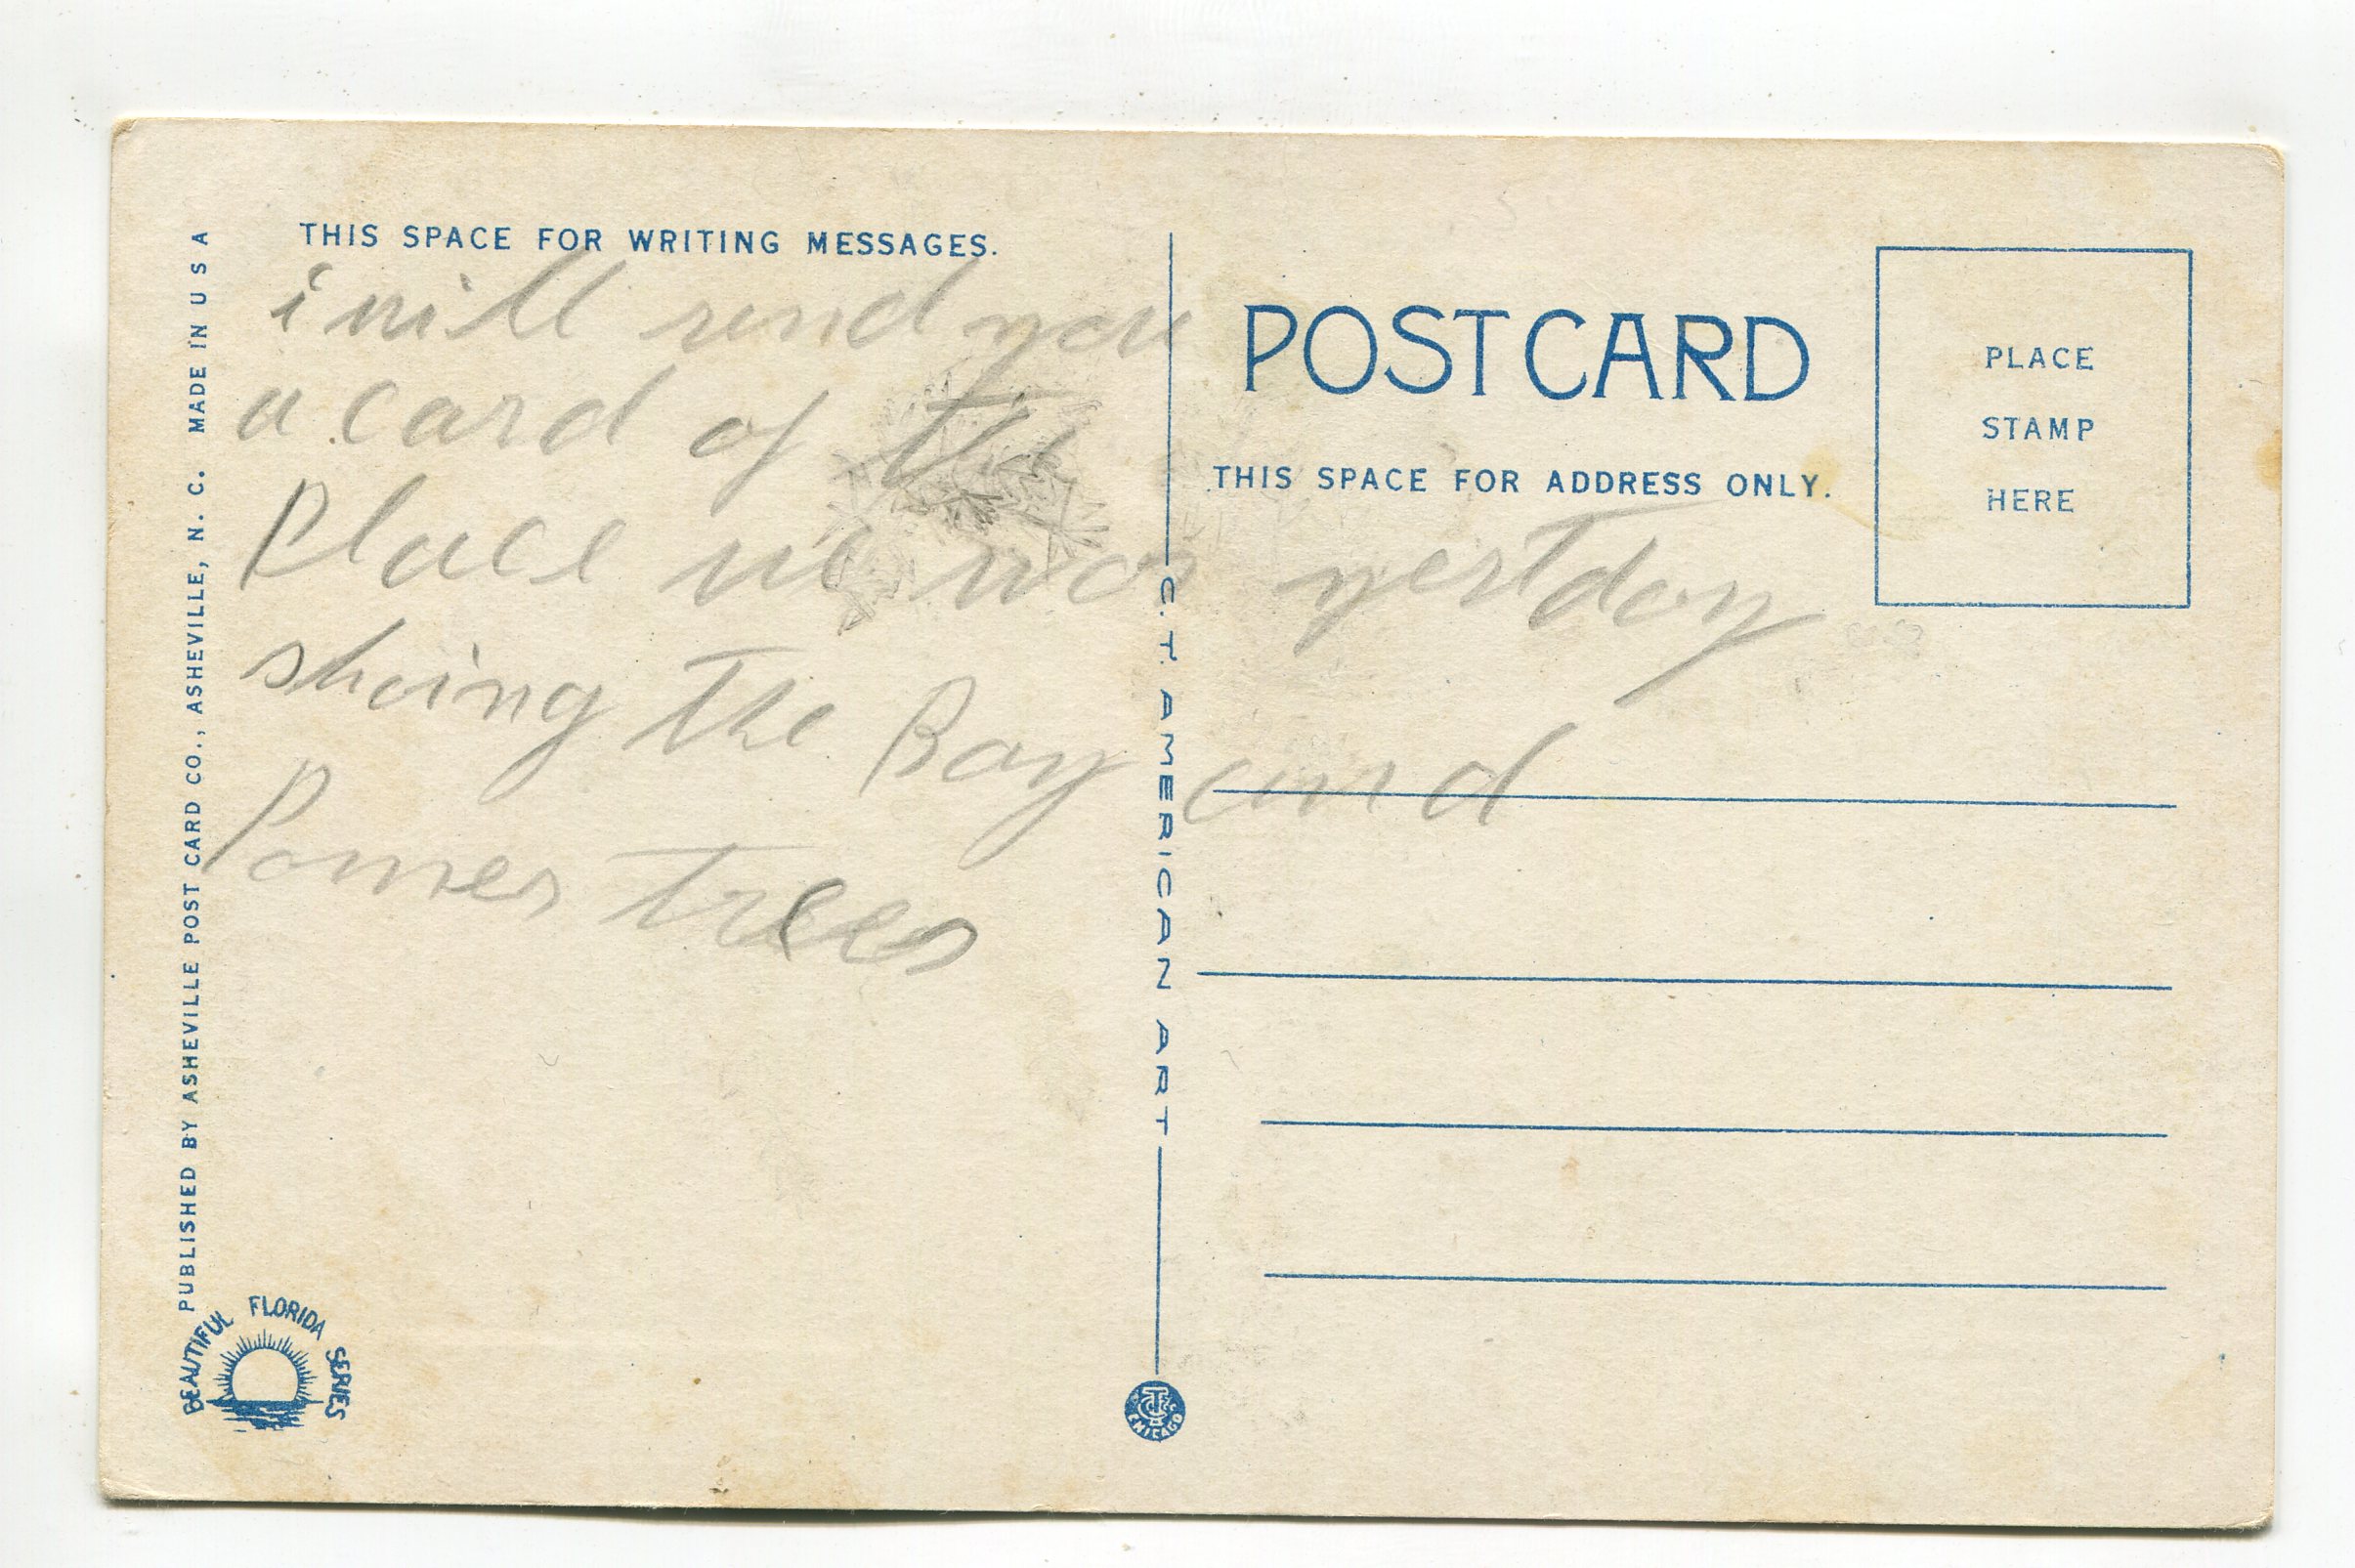 THIS SPACE FOR WRITING MESSAGES.
i will send you
a card of the
Place we wos yestday
shoing the Bay and
Pomes trees
PUBLISHED BY ASHEVILLE POST CARD CO., ASHEVILLE, N. C. MADE IN U S A
BEAUTIFUL FLORIDA SERIES
C. T. AMERICAN ART
CHICAGO
POST CARD
THIS SPACE FOR ADDRESS ONLY.
PLACE
STAMP
HERE